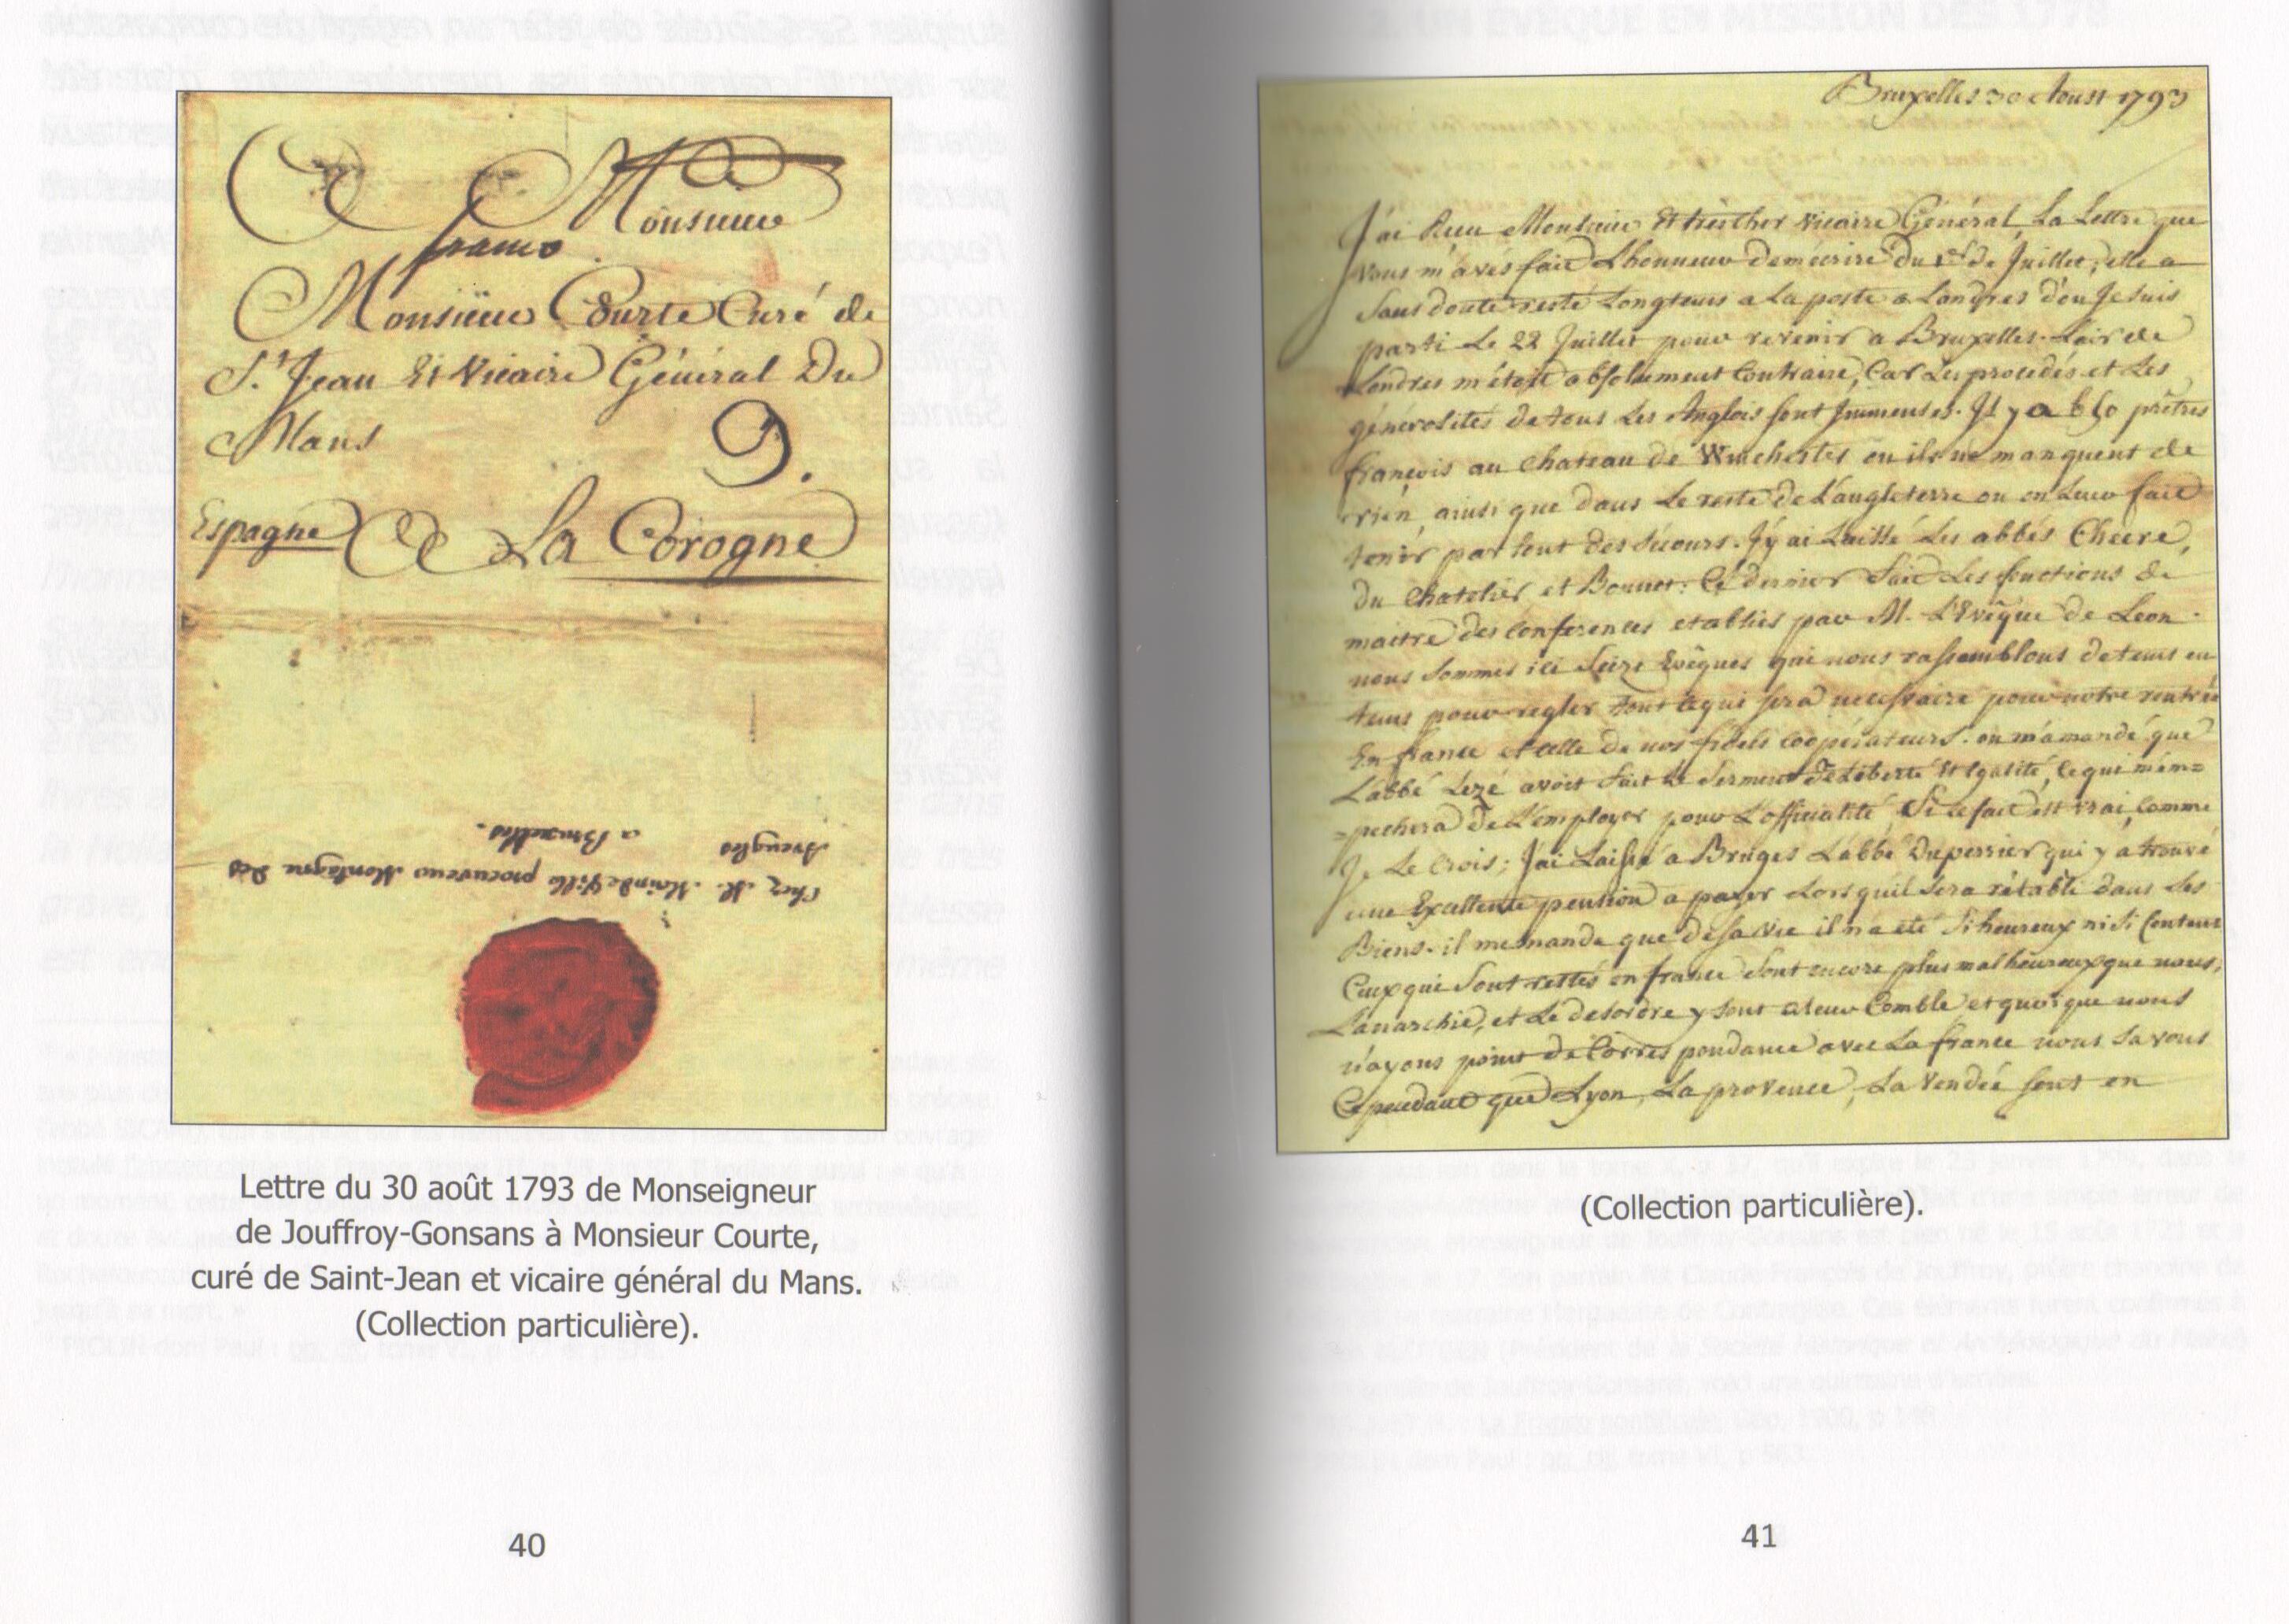 A Monsieur
franco
Monsieur Courte Curé de
St. Jean Et Vicaire Général Du
Mans
9.
Espagne A La Corogne
Chez M. procureur Montagne des
Aveugles
a Bruxelles.
Lettre du 30 août 1793 de Monseigneur
de Jouffroy-Gonsans à Monsieur Courte,
curé de Saint-Jean et vicaire général du Mans.
(Collection particulière).
40
Bruxelles 30 Aoust 1793
J'ai Reçu Monsieur Et très Cher Vicaire Général, La Lettre que
vous m'avés fait L'honneur de m'écrire du 1er de Juillet; elle a
Sans doute resté Longtems a La poste a Londres d'ou Je suis
parti Le 22 Juillet pour revenir a Bruxelles. L'air de
Londres m'étoit absolument Contraire, Car Les procedés et Les
générosités de tous Les Anglois sont Immenses. Il y a 650 prêtres
françois au Chateau de Winchester ou ils ne manquent de
rien, ainsi que dans Le reste de L'angleterre ou on Leur fait
tenir par tout des Secours. J'y ai Laissé Les abbés Cheere,
du Chatelier et Bonnet: Ce dernier Fait Les fonctions de
maitre des Conferences etablies par M. L'Evêque de Leon.
nous Sommes ici Seize Evêques qui nous rassemblons de tems en
tems pour regler tout ce qui sera necessaire pour notre rentrée
En france et celle de nos fidels coopérateurs. on m'a mandé que
L'abbé Lezé avoit Fait Le Serment De Liberté Et Egalité, ce qui m'em=
=pechera De L'employer pour L'officialité, Si Le fait est vrai, Comme
Je Le Crois; J'ai Laissé a Bruges L'abbé Duperrier qui y a trouvé
une Excellente pension a payer Lorsqu'il Sera rétabli dans Ses
Biens. il me mande que de sa Vie il n'a eté Si heureux ni Si Content
Ceux qui Sont restés en france Sont encore plus malheureux que nous,
L'anarchie, et Le desordre y sont a leur Comble et quoique nous
n'ayons point de Correspondance avec La france nous Savons
Cependant que Lyon, La provence, La Vendée sont en
(Collection particulière).
41